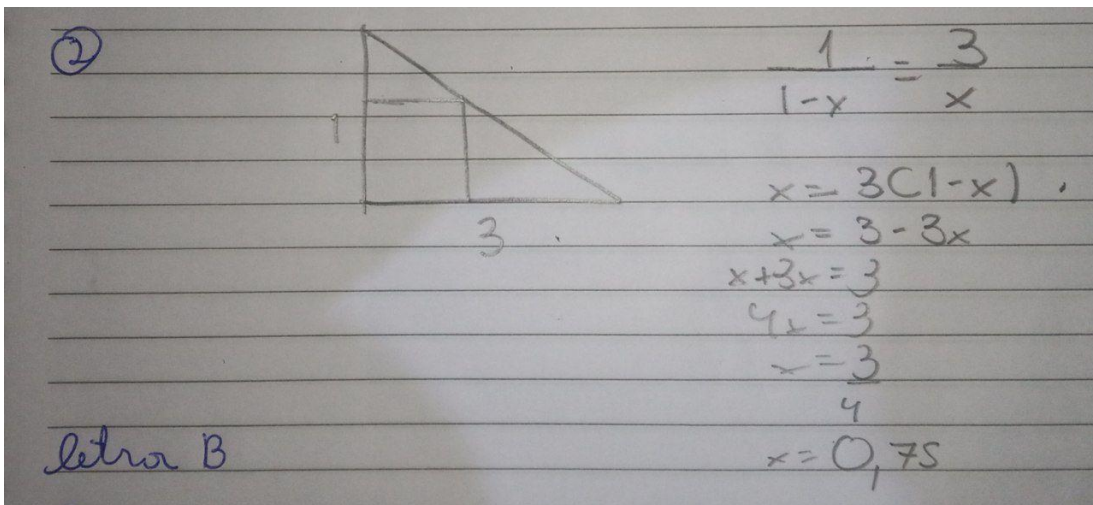 2
1
3
1/(1-x) = 3/x
x = 3(1-x) .
x = 3 - 3x
x+3x = 3
4x = 3
x = 3/4
x = 0,75
letra B